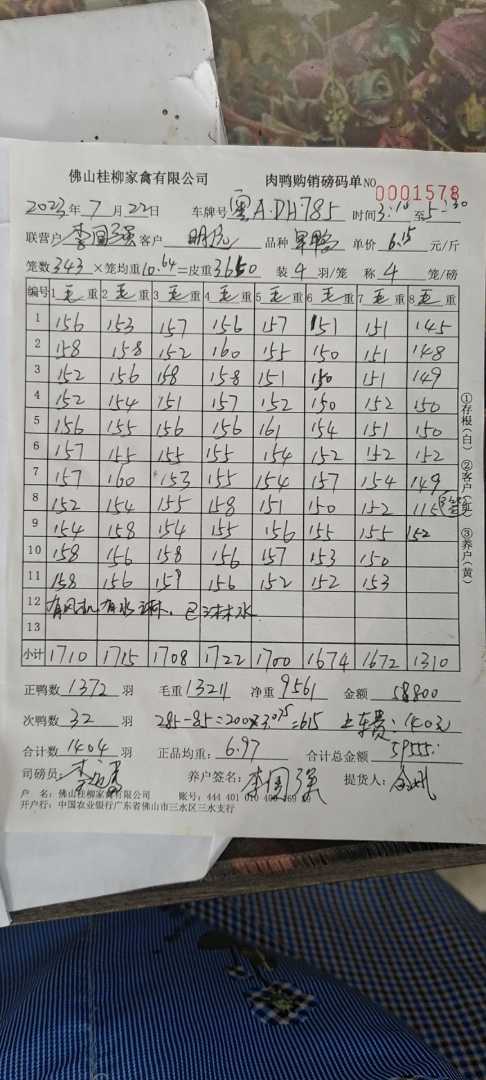 佛山桂柳家禽有限公司 肉鸭购销磅码单 NO 0001578
2023年 7月 22日 车牌号 粤A·DH785 时间 3:10 至 5:30
联营户 李国强 客户 品种 单价 6.15 元/斤
笼数 343 ×笼均重 10.64 =皮重 3650 装 4 羽/笼 称 4 笼/磅
编号 1 毛重 2 毛重 3 毛重 4 毛重 5 毛重 6 毛重 7 毛重 8 毛重
1 156 153 157 156 157 151 151 145
2 158 158 152 160 155 150 151 148
3 152 156 158 158 151 150 151 149
4 152 154 151 157 152 150 152 150
5 156 155 156 156 161 154 151 150
6 157 155 155 155 154 152 152 152
7 157 160 153 155 154 157 154 149
8 152 154 155 158 151 150 152 115
9 154 158 154 155 156 155 155 152
10 158 156 158 156 157 153 150
11 158 156 159 156 152 152 153
12 有风机有水淋、已淋水
13
小计 1710 1715 1708 1722 1700 1674 1672 1310
①存根(白) ②客户(红) ③养户(黄)
正鸭数 1372 羽 毛重 13211 净重 9561 金额 58800
次鸭数 32 羽 285-85=200×3.075=615 上车费:140元
合计数 1404 羽 正品均重: 6.97 合计总金额 59555
司磅员: 养户签名: 李国强 提货人:
户 名:佛山桂柳家禽有限公司 账号:444 401 010 400
开户行:中国农业银行广东省佛山市三水区三水支行